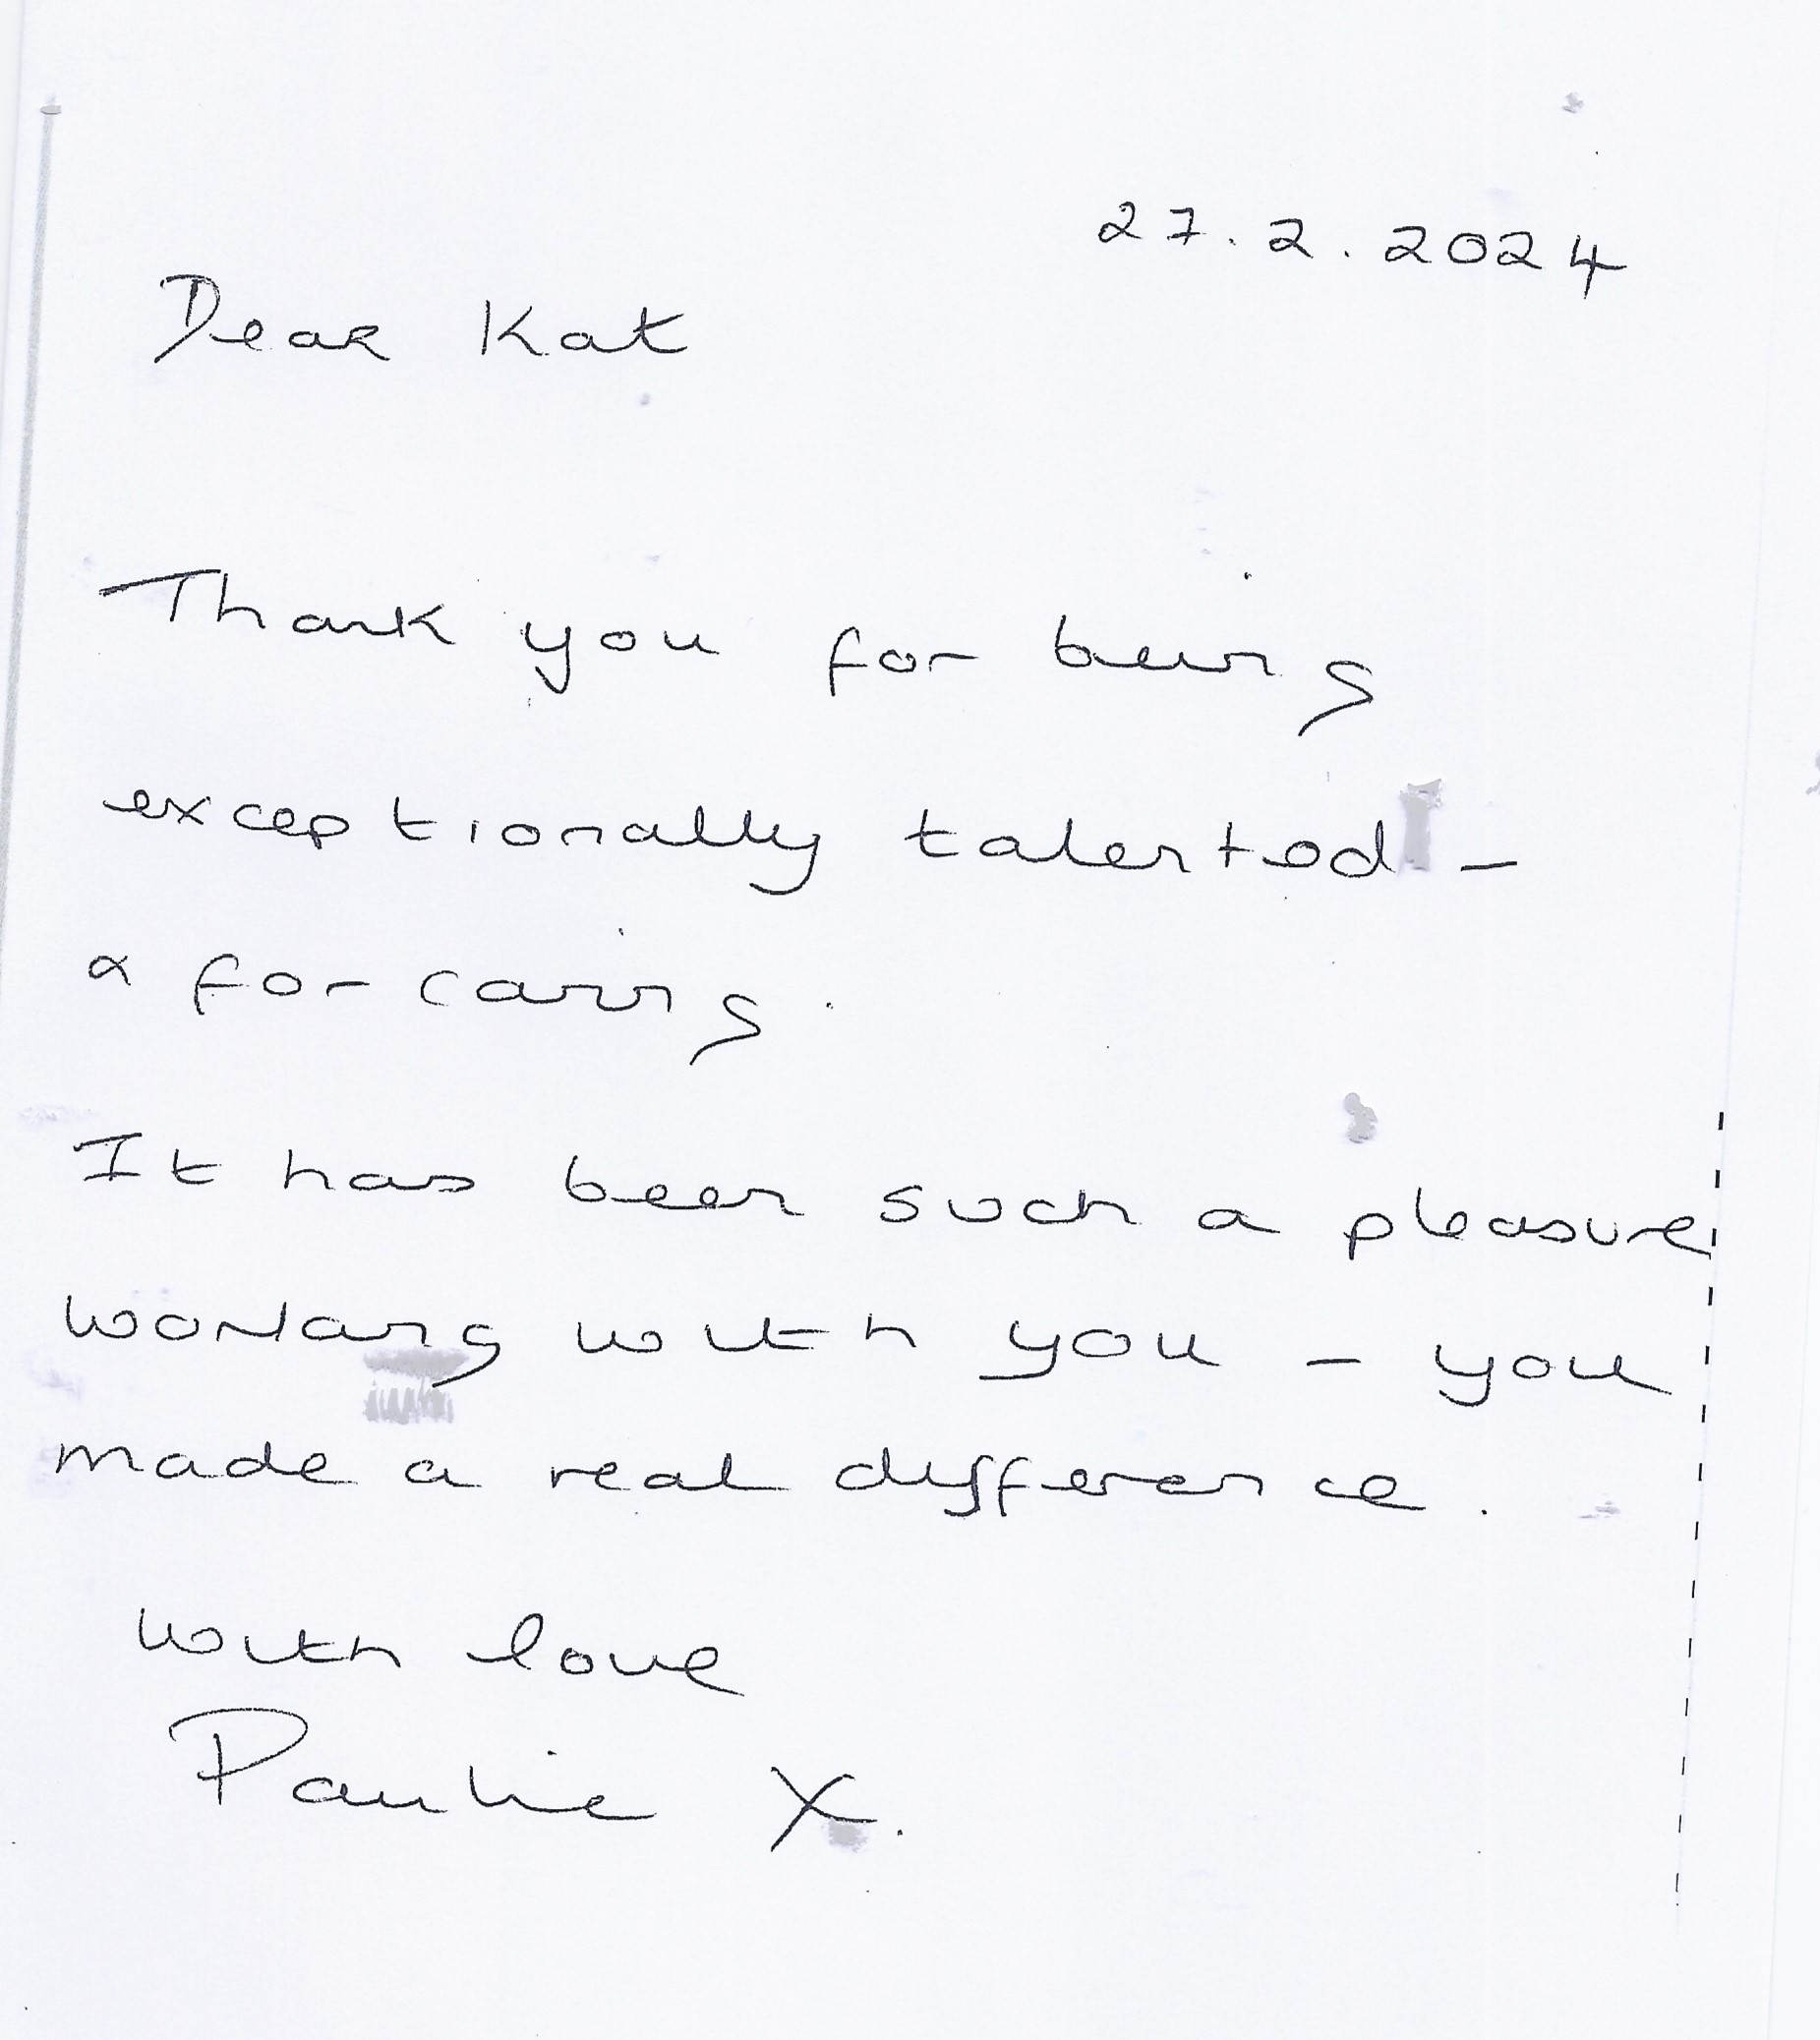 27.2.2024
Dear Kat
Thank you for being
exceptionally talented -
& for caring.
It has been such a pleasure
working with you - you
made a real difference.
with love
Paulie X.